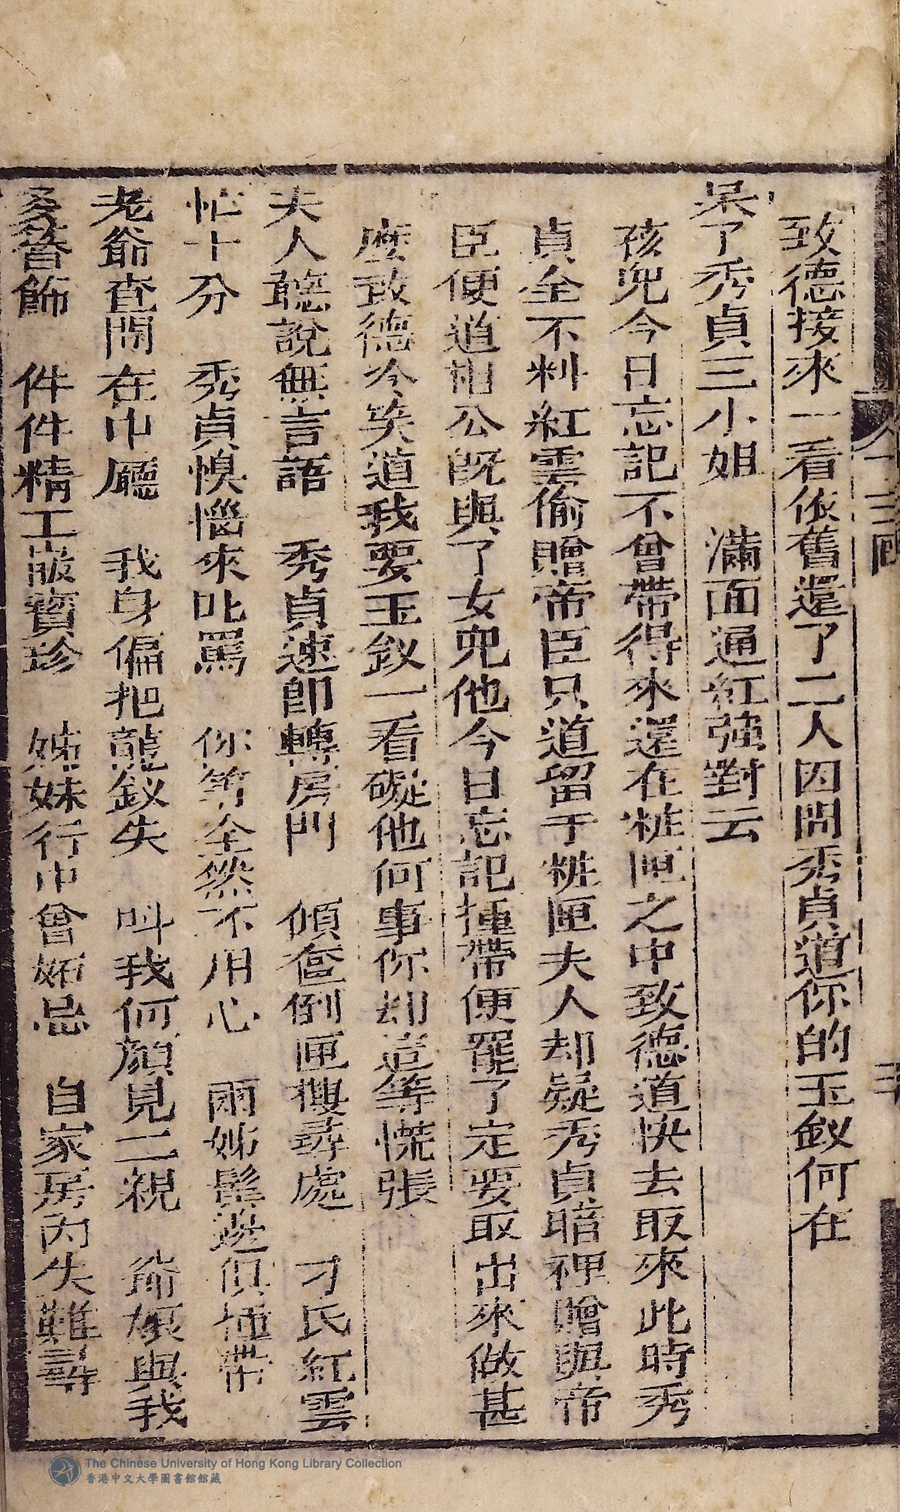 致德接來一看依舊還了二人因問秀貞道你的玉釵何在
呆了秀貞三小姐 滿面通紅強對云
孩兒今日忘記不曾帶得來還在粧匣之中致德道快去取來此時秀
貞全不料紅雲偷贈帝臣只道留于粧匣夫人却疑秀貞暗裡贈與帝
臣便道相公旣與了女兒他今日忘記揷帶便罷了定要取出來做甚
麽致德冷笑道我要玉釵一看礙他何事你却這等慌張
夫人聽說無言語 秀貞速卽轉房門 傾奩倒匣搜尋處 刁氏紅雲
忙十分 秀貞懊惱來叱罵 你等全然不用心 兩姊髻邊俱揷帶
老爺查問在中廳 我身偏把龍釵失 呌我何顏見二親 爺娘與我
多首飾 件件精工嵌寶珍 姊妹行中曾妬忌 自家房內失難尋
The Chinese University of Hong Kong Library Collection
香港中文大學圖書館館藏